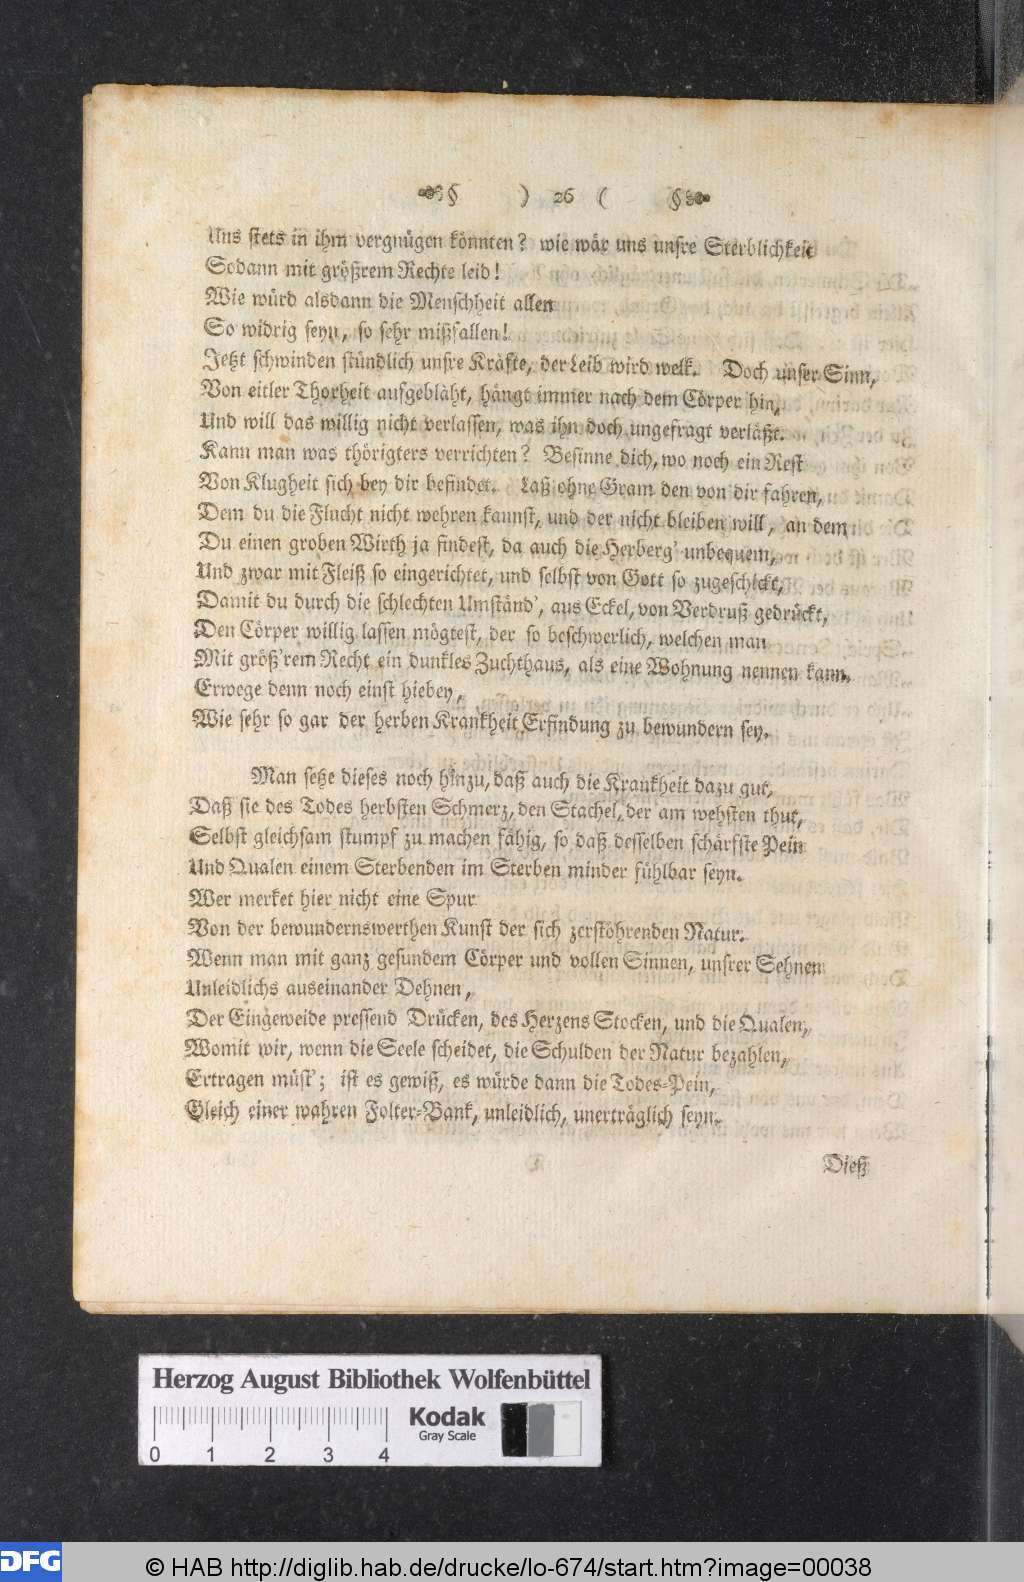 § ) 26 ( §
Uns stets in ihm vergnügen könnten? wie wär uns unsre Sterblichkeit
Sodann mit größrem Rechte leid!
Wie würd alsdann die Menschheit allen
So widrig seyn, so sehr mißfallen!
Jetzt schwinden stündlich unsre Kräfte, der Leib wird welk. Doch unser Sinn,
Von eitler Thorheit aufgebläht, hängt immer nach dem Cörper hin,
Und will das willig nicht verlassen, was ihn doch ungefragt verläßt.
Kann man was thörigters verrichten? Besinne dich, wo noch ein Rest
Von Klugheit sich bey dir befindet. Laß ohne Gram den von dir fahren,
Dem du die Flucht nicht wehren kannst, und der nicht bleiben will, an dem
Du einen groben Wirth ja findest, da auch die Herberg' unbequem,
Und zwar mit Fleiß so eingerichtet, und selbst von Gott so zugeschickt,
Damit du durch die schlechten Umständ', aus Eckel, von Verdruß gedrückt,
Den Cörper willig lassen mögtest, der so beschwerlich, welchen man
Mit größ'rem Recht ein dunkles Zuchthaus, als eine Wohnung nennen kann.
Erwege denn noch einst hiebey,
Wie sehr so gar der herben Krankheit Erfindung zu bewundern sey.
Man setze dieses noch hinzu, daß auch die Krankheit dazu gut,
Daß sie des Todes herbsten Schmerz, den Stachel, der am wehsten thut,
Selbst gleichsam stumpf zu machen fähig, so daß desselben schärfste Pein
Und Qualen einem Sterbenden im Sterben minder fühlbar seyn.
Wer merket hier nicht eine Spur
Von der bewundernswerthen Kunst der sich zerstöhrenden Natur.
Wenn man mit ganz gesundem Cörper und vollen Sinnen, unsrer Sehnen
Unleidlichs auseinander Dehnen,
Der Eingeweide pressend Drücken, des Herzens Stocken, und die Qualen,
Womit wir, wenn die Seele scheidet, die Schulden der Natur bezahlen,
Ertragen müst'; ist es gewiß, es würde dann die Todes-Pein,
Gleich einer wahren Folter-Bank, unleidlich, unerträglich seyn.
Dieß
Herzog August Bibliothek Wolfenbüttel
Kodak
Gray Scale
0 1 2 3 4
DFG
© HAB http://diglib.hab.de/drucke/lo-674/start.htm?image=00038